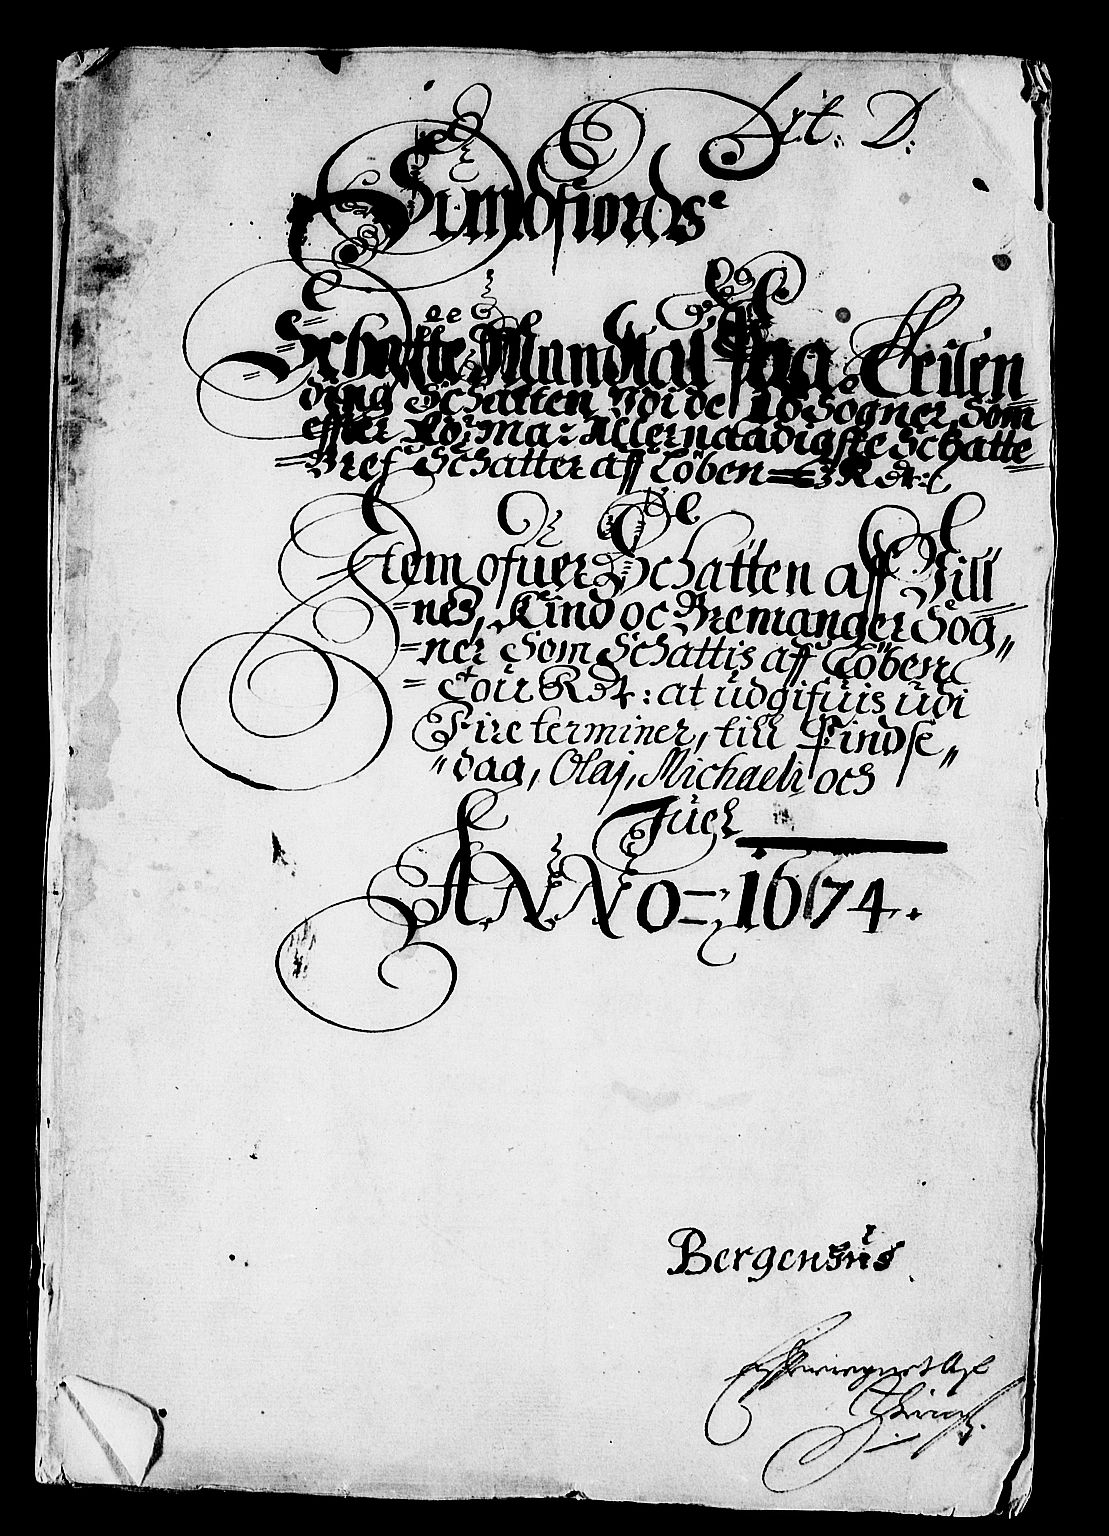 Lit: D.
Sundfiords
Schatte Mandtal Paa Treilen
ding Schatten Udi de 10 Sogner, Som
effter Ko: Ma: Allernaadigste Schatte
Bref Schatter aff Löben = 3 Rdr:
Item ofuer Schatten aff Vill
nes, Kind oc Bremanger Sog„
ner Som Schattis aff Löben
Toü Rdr: at üdgifuis üdi
Fire terminer, till Pindse„
„dag, Olaj, Michaeli och
Juel
ANNO = 1674.
Bergensüs